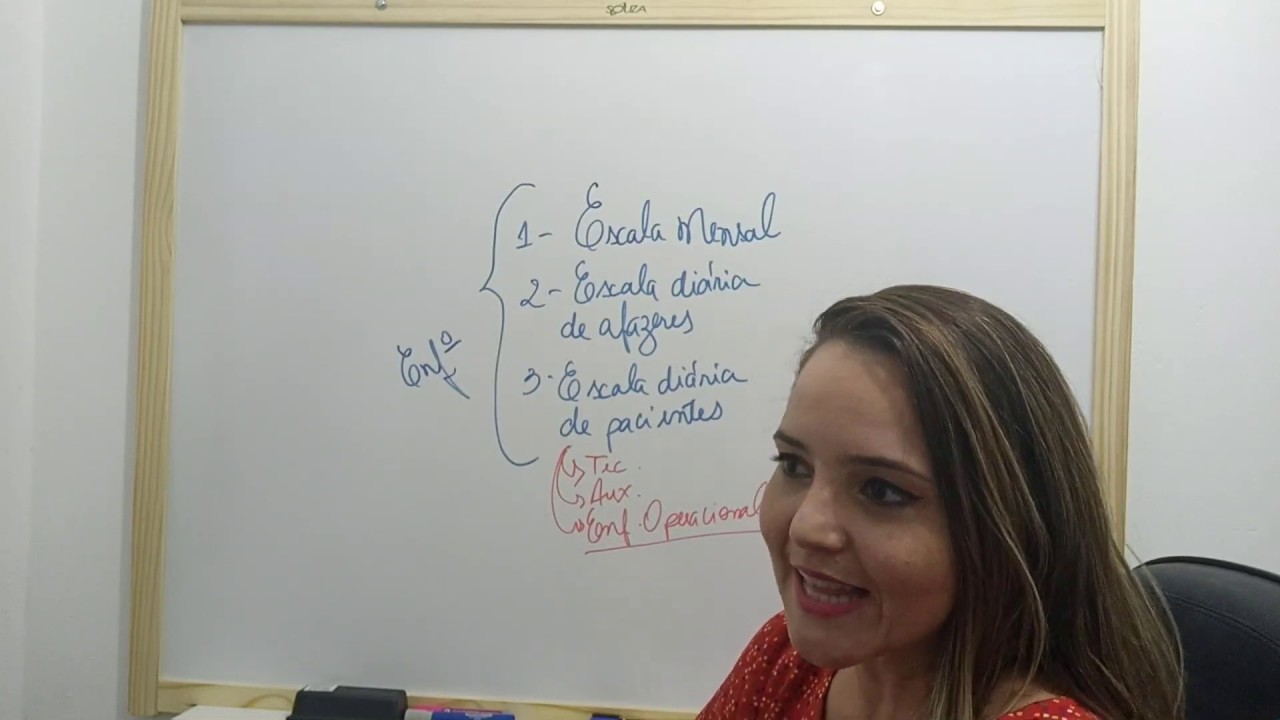 SOUZA
1- Escala Mensal
2- Escala diária
de afazeres
Enfº
3- Escala diária
de pacientes
Tec.
Aux.
Enf. Operacional